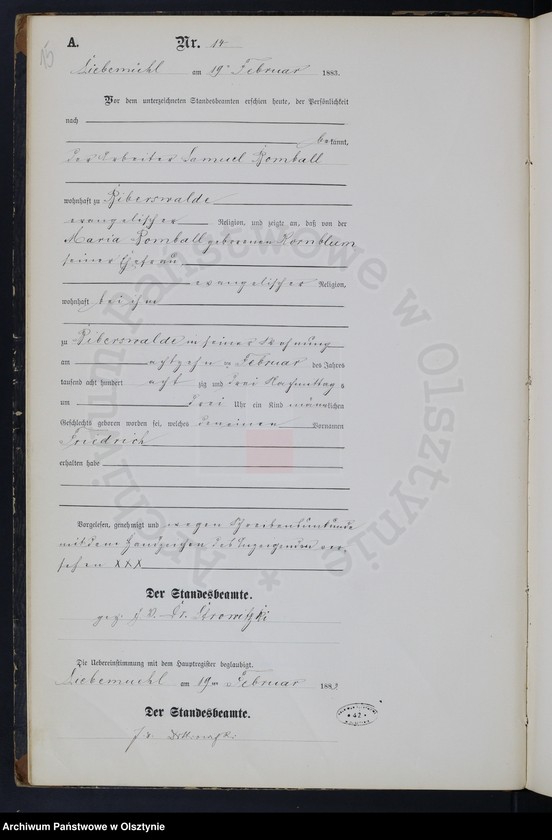 A. Nr. 14
Liebemuehl am 19 Februar 1883.
Vor dem unterzeichneten Standesbeamten erschien heute, der Persönlichkeit
nach
bekannt,
der Arbeiter Samuel Pomball
wohnhaft zu Biberswalde
evangelischer Religion, und zeigte an, daß von der
Maria Pomball geborenen Kornblum
seiner Ehefrau
evangelischer Religion,
wohnhaft bei ihm
zu Biberswalde in seiner Wohnung
am achtzehn ten Februar des Jahres
tausend acht hundert acht zig und drei Nachmittags
um drei Uhr ein Kind männlichen
Geschlechts geboren worden sei, welches den einen Vornamen
Friedrich
erhalten habe
Vorgelesen, genehmigt und wegen Schreibensunkunde
mit dem Handzeichen des Anzeigenden ver-
sehen XXX
Der Standesbeamte.
gez. J. V. Dr.
Die Uebereinstimmung mit dem Hauptregister beglaubigt.
Liebemuehl am 19ten Februar 1883
Der Standesbeamte.
J. V.
42
Archiwum Państwowe w Olsztynie
Archiwum Państwowe w Olsztynie